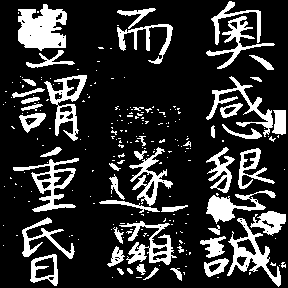 奧感懇誠
而遂顯
豈謂重昏